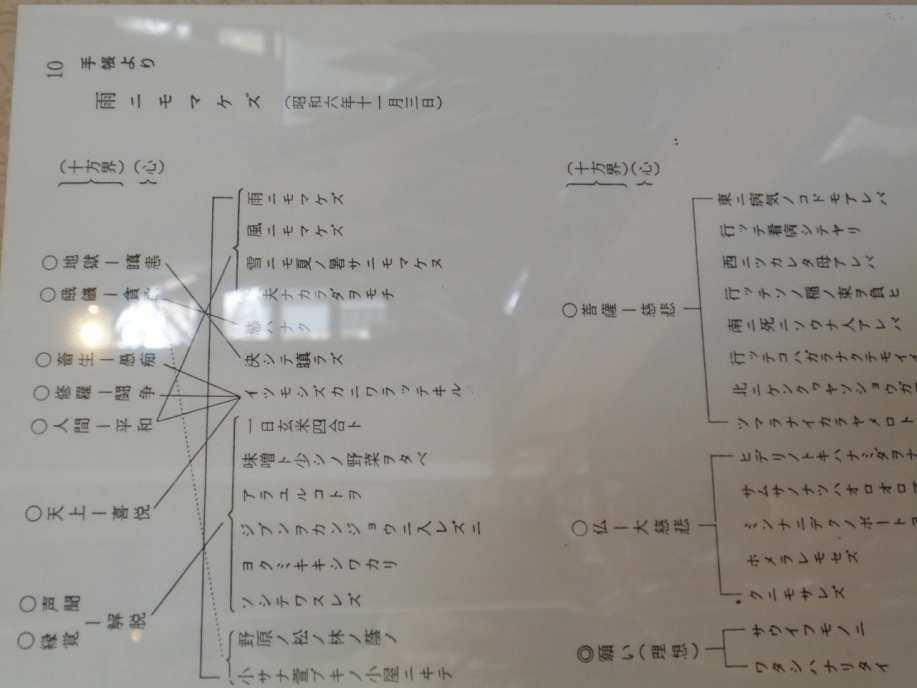 10 手帳より
雨ニモマケズ (昭和六年十一月三日)
(十方界)(心)
○地獄―瞋恚
○餓鬼―貪
○畜生―愚痴
○修羅―闘争
○人間―平和
○天上―喜悦
○声聞
○縁覚
―解脱
雨ニモマケズ
風ニモマケズ
雪ニモ夏ノ暑サニモマケヌ
夫ナカラダヲモチ
慾ハナク
決シテ瞋ラズ
イツモシズカニワラッテヰル
一日玄米四合ト
味噌ト少シノ野菜ヲタベ
アラユルコトヲ
ジブンヲカンジョウニ入レズニ
ヨクミキキシワカリ
ソシテワスレズ
野原ノ松ノ林ノ蔭ノ
小サナ萱ブキノ小屋ニヰテ
(十方界)(心)
○菩薩―慈悲
東ニ病気ノコドモアレバ
行ッテ看病シテヤリ
西ニツカレタ母アレバ
行ッテソノ稲ノ束ヲ負ヒ
南ニ死ニソウナ人アレバ
行ッテコハガラナクテモイ
北ニケンクヮヤソショウガ
ツマラナイカラヤメロト
○仏―大慈悲
ヒデリノトキハナミダヲナ
サムサノナツハオロオロ
ミンナニデクノボート
ホメラレモセズ
クニモサレズ
◎願い(理想)
サウイフモノニ
ワタシハナリタイ